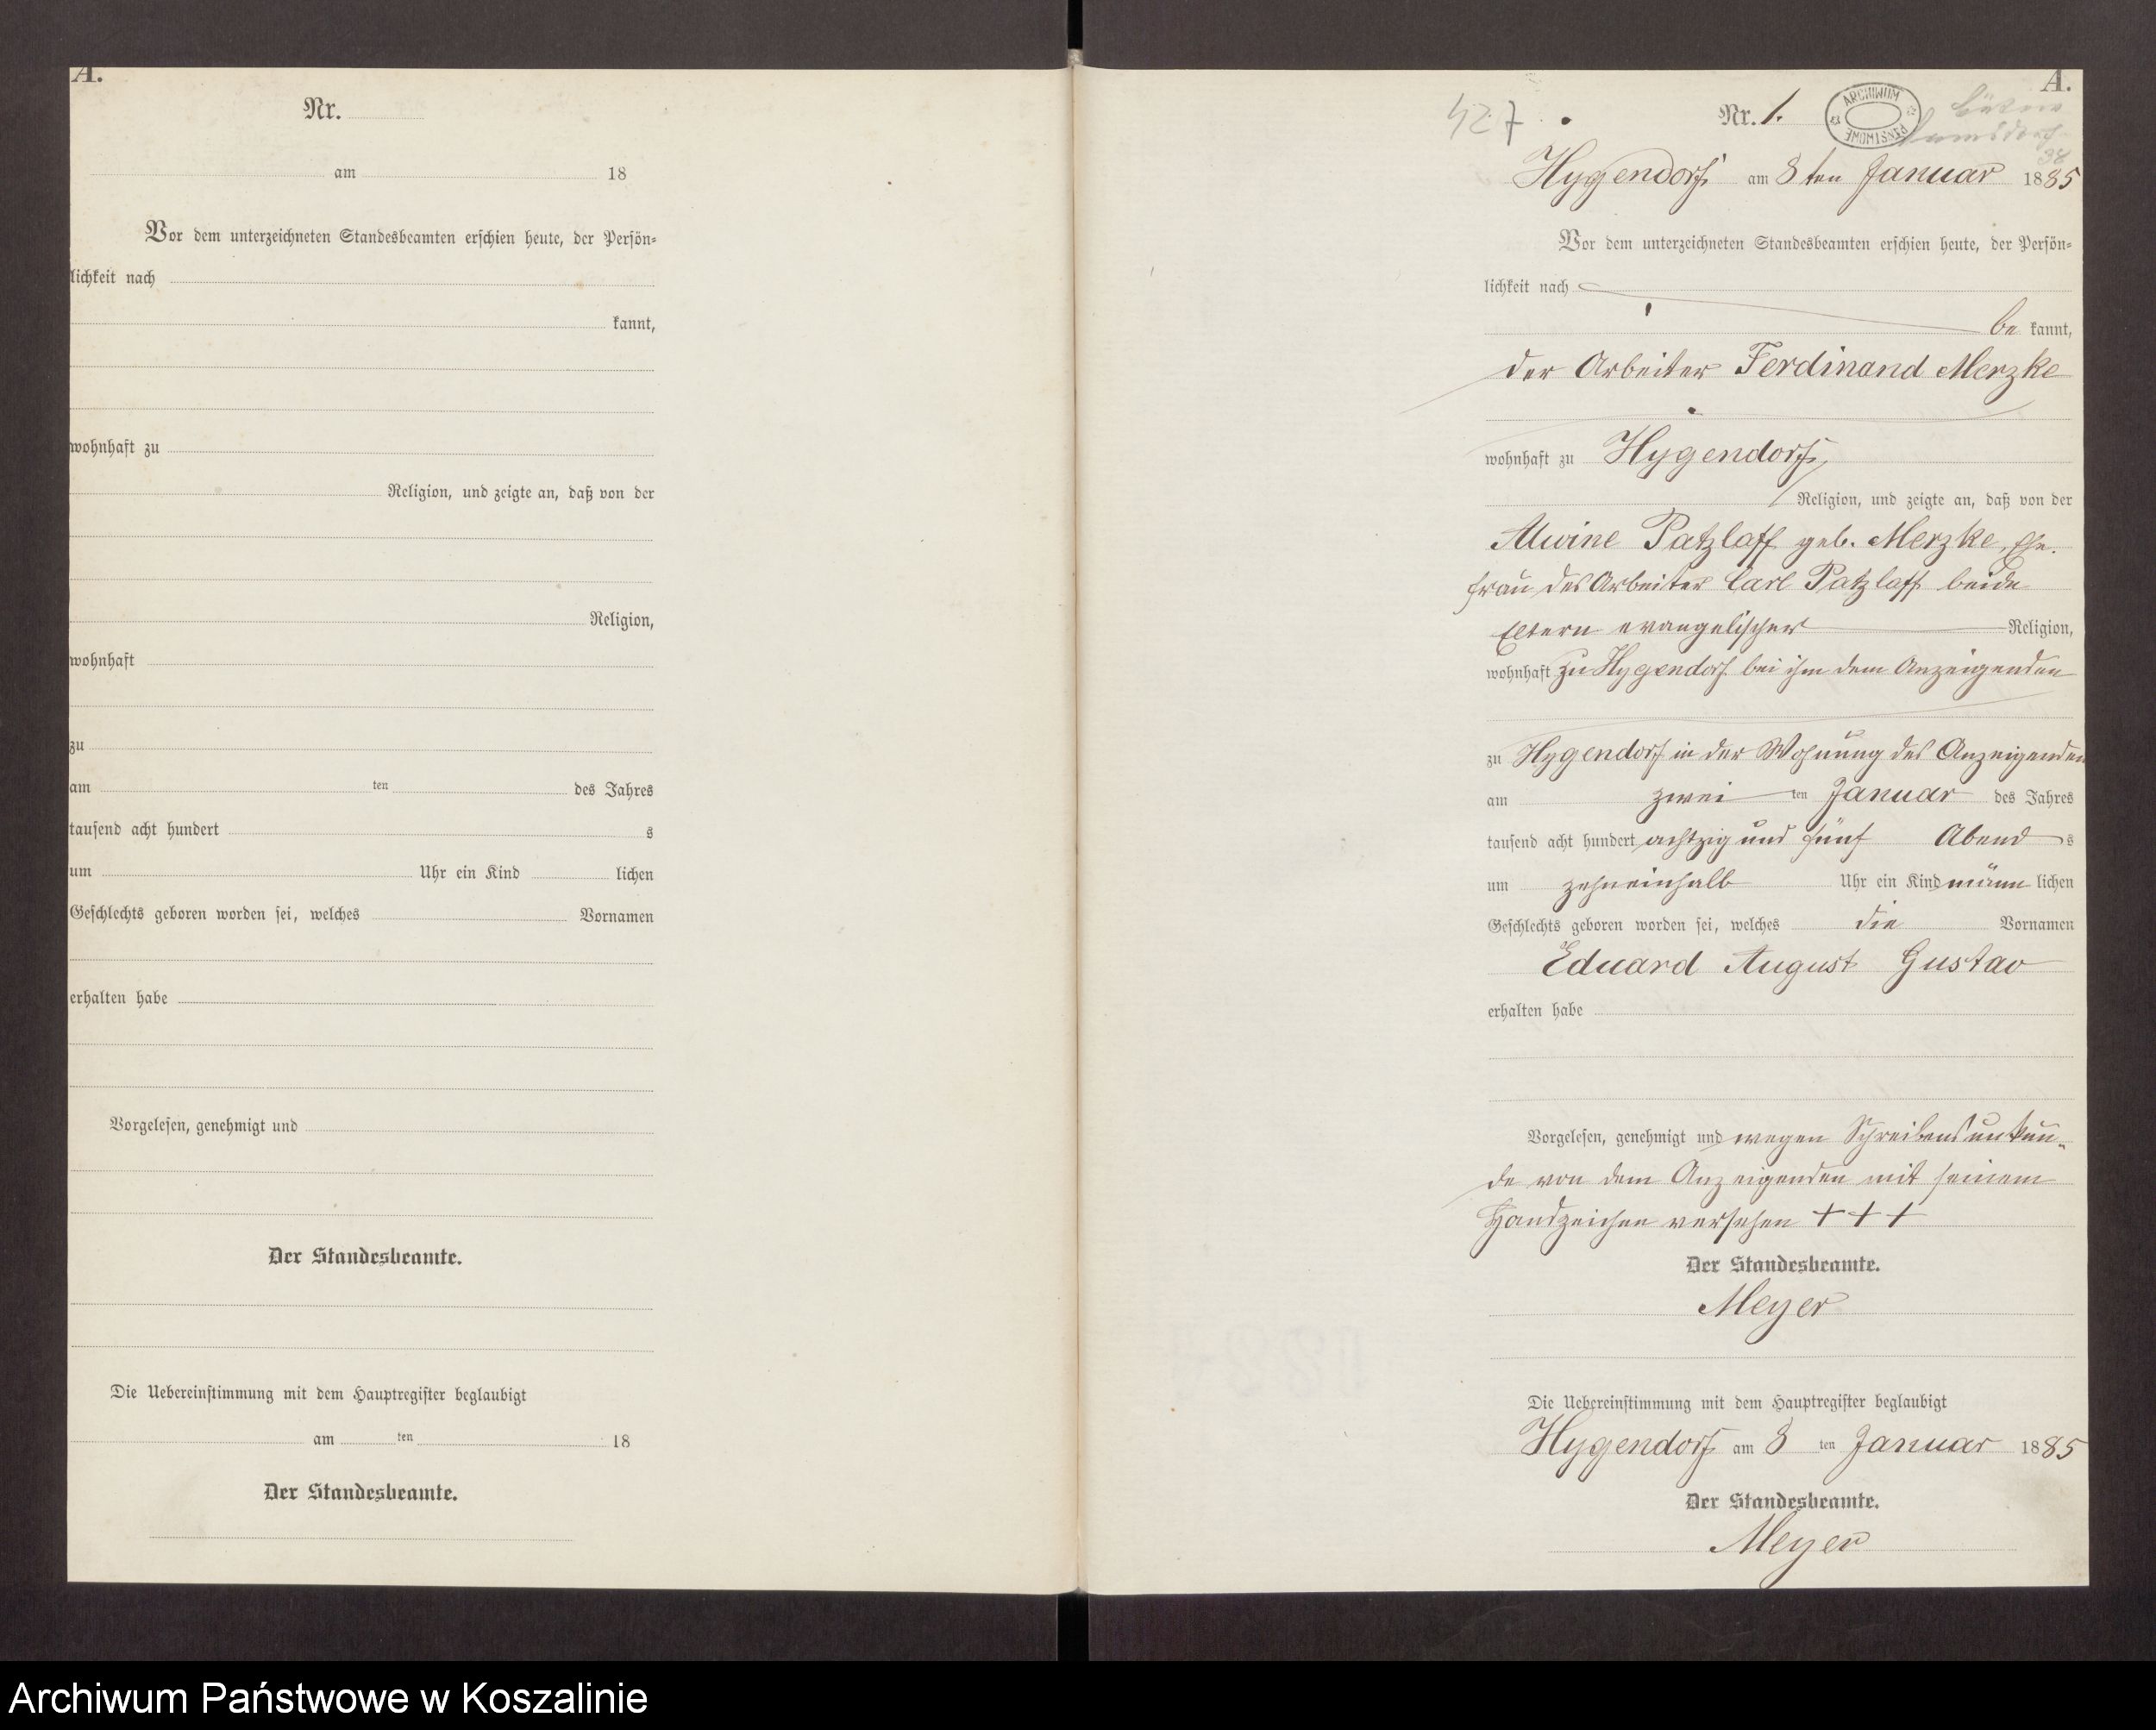 A.
Nr.
am 18
Vor dem unterzeichneten Standesbeamten erschien heute, der Persön=
lichkeit nach
kannt,
wohnhaft zu
Religion, und zeigte an, daß von der
Religion,
wohnhaft
zu
am ten des Jahres
tausend acht hundert s
um Uhr ein Kind lichen
Geschlechts geboren worden sei, welches Vornamen
erhalten habe
Vorgelesen, genehmigt und
Der Standesbeamte.
Die Uebereinstimmung mit dem Hauptregister beglaubigt
am ten 18
Der Standesbeamte.
A.
427
Nr. 1.
ARCHIWUM PAŃSTWOWE
Hygendorf am 8ten Januar 1885
Vor dem unterzeichneten Standesbeamten erschien heute, der Persön=
lichkeit nach
be kannt,
der Arbeiter Ferdinand Merzke
wohnhaft zu Hygendorf,
Religion, und zeigte an, daß von der
Alwine Patzlaff geb. Merzke, Ehe-
frau des Arbeiter Carl Patzlaff beide
Eltern evangelischer Religion,
wohnhaft zu Hygendorf bei ihm dem Anzeigenden
zu Hygendorf in der Wohnung des Anzeigenden
am zwei ten Januar des Jahres
tausend acht hundert achtzig und fünf Abend s
um zehneinhalb Uhr ein Kind männ lichen
Geschlechts geboren worden sei, welches die Vornamen
Eduard August Gustav
erhalten habe
Vorgelesen, genehmigt und wegen Schreibensunkun-
de von dem Anzeigenden mit seinem
Handzeichen versehen +++
Der Standesbeamte.
Meyer
Die Uebereinstimmung mit dem Hauptregister beglaubigt
Hygendorf am 8 ten Januar 1885
Der Standesbeamte.
Meyer
Archiwum Państwowe w Koszalinie